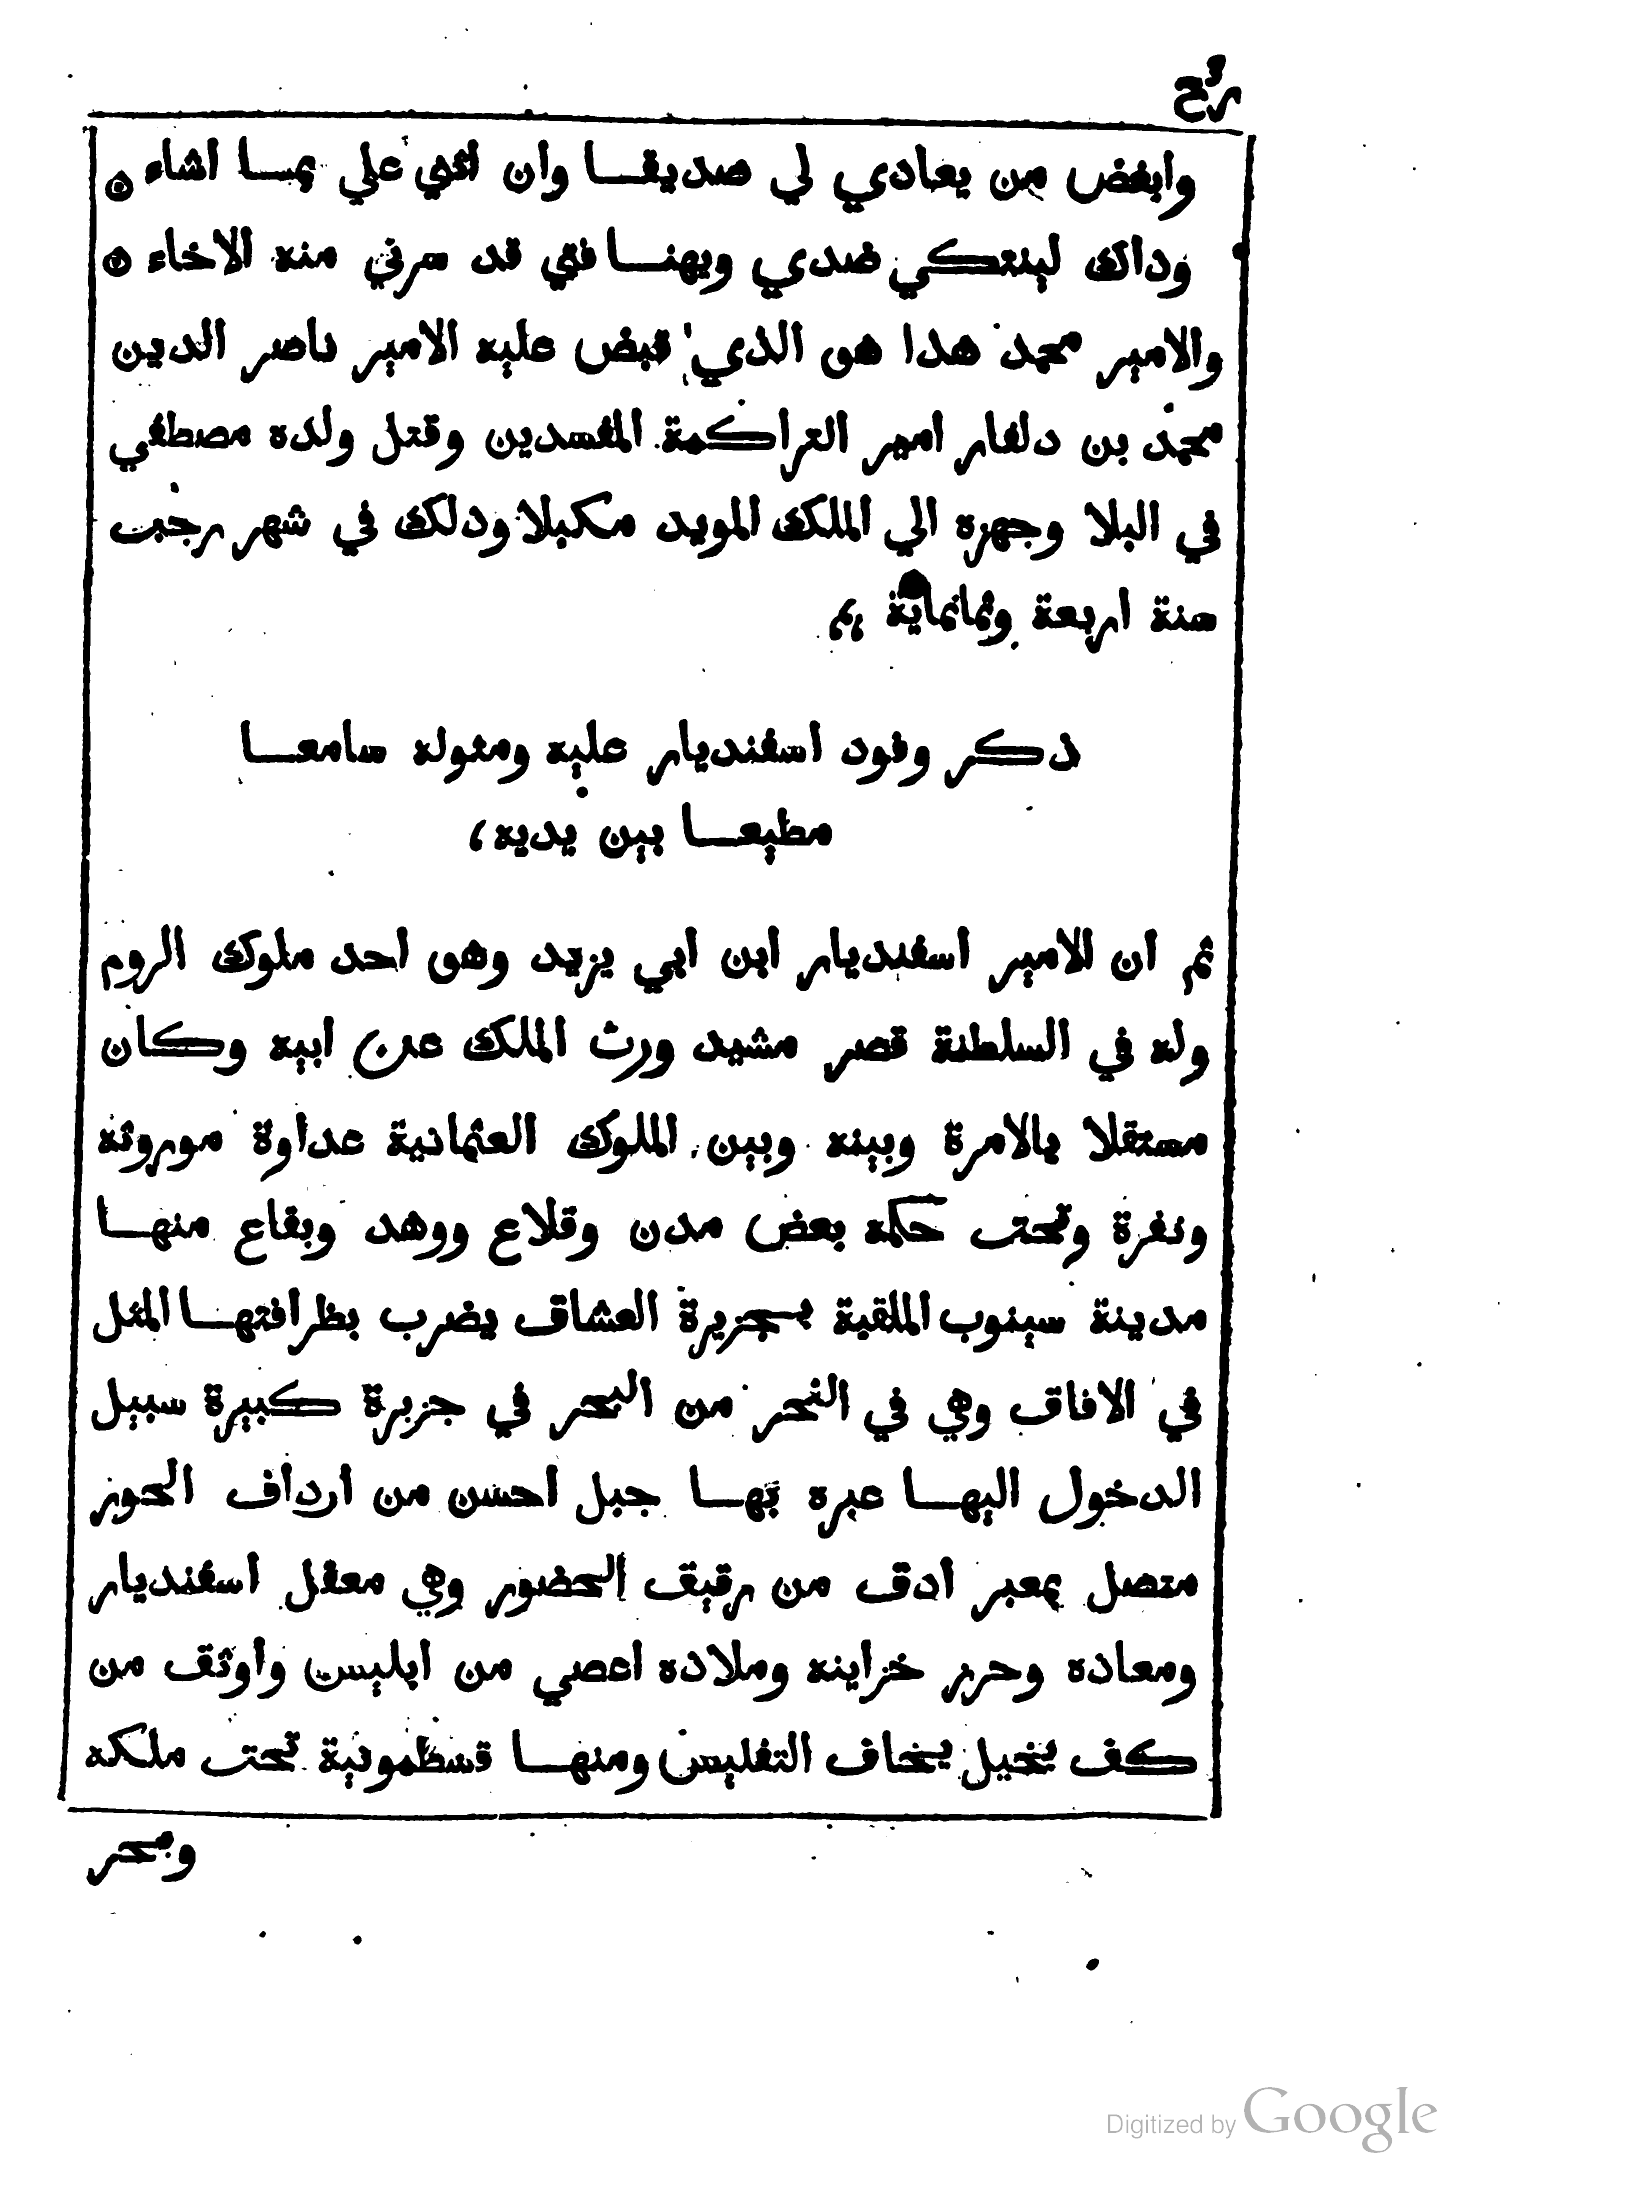 رثح
وابغض من يعادي لي صديقا وان اثني علي بما اشاء ۞
وداك لينتكي ضدي ويهنا فتي قد سرني منه الاخاء ۞
والامير محمد هدا هو الذي قبض عليه الامير ناصر الدين
محمد بن دلغار امير التراكمة المفسدين وقتل ولده مصطفي
في البلا وجهزه الي الملك المويد مكبلا ودلك في شهر رجب
سنة اربعة وثمانماية
ذكر وفود اسفنديار عليه ومثوله سامعا
مطيعا بين يديه،
ثم ان الامير اسفنديار ابن ابي يزيد وهو احد ملوك الروم
وله في السلطنة قصر مشيد ورث الملك عن ابيه وكان
مستقلا بالامرة وبينه وبين الملوك العثمانية عداوة موروثه
ونفرة وتحت حكمه بعض مدن وقلاع ووهد وبقاع منها
مدينة سينوب الملقبة بجزيرة العشاق يضرب بظرافتها المثل
في الافاق وهي في النحر من البحر في جزيرة كبيرة سبيل
الدخول اليها عبره بها جبل احسن من ارداف الحور
متصل بمعبر ادق من رقيق الخصور وهي معقل اسفنديار
ومعاده وحرز خزاينه وملاده اعصي من ابليس واوثق من
كف بخيل يخاف التفليس ومنها قسطمونية تحت ملكه
وبحر
Digitized by Google